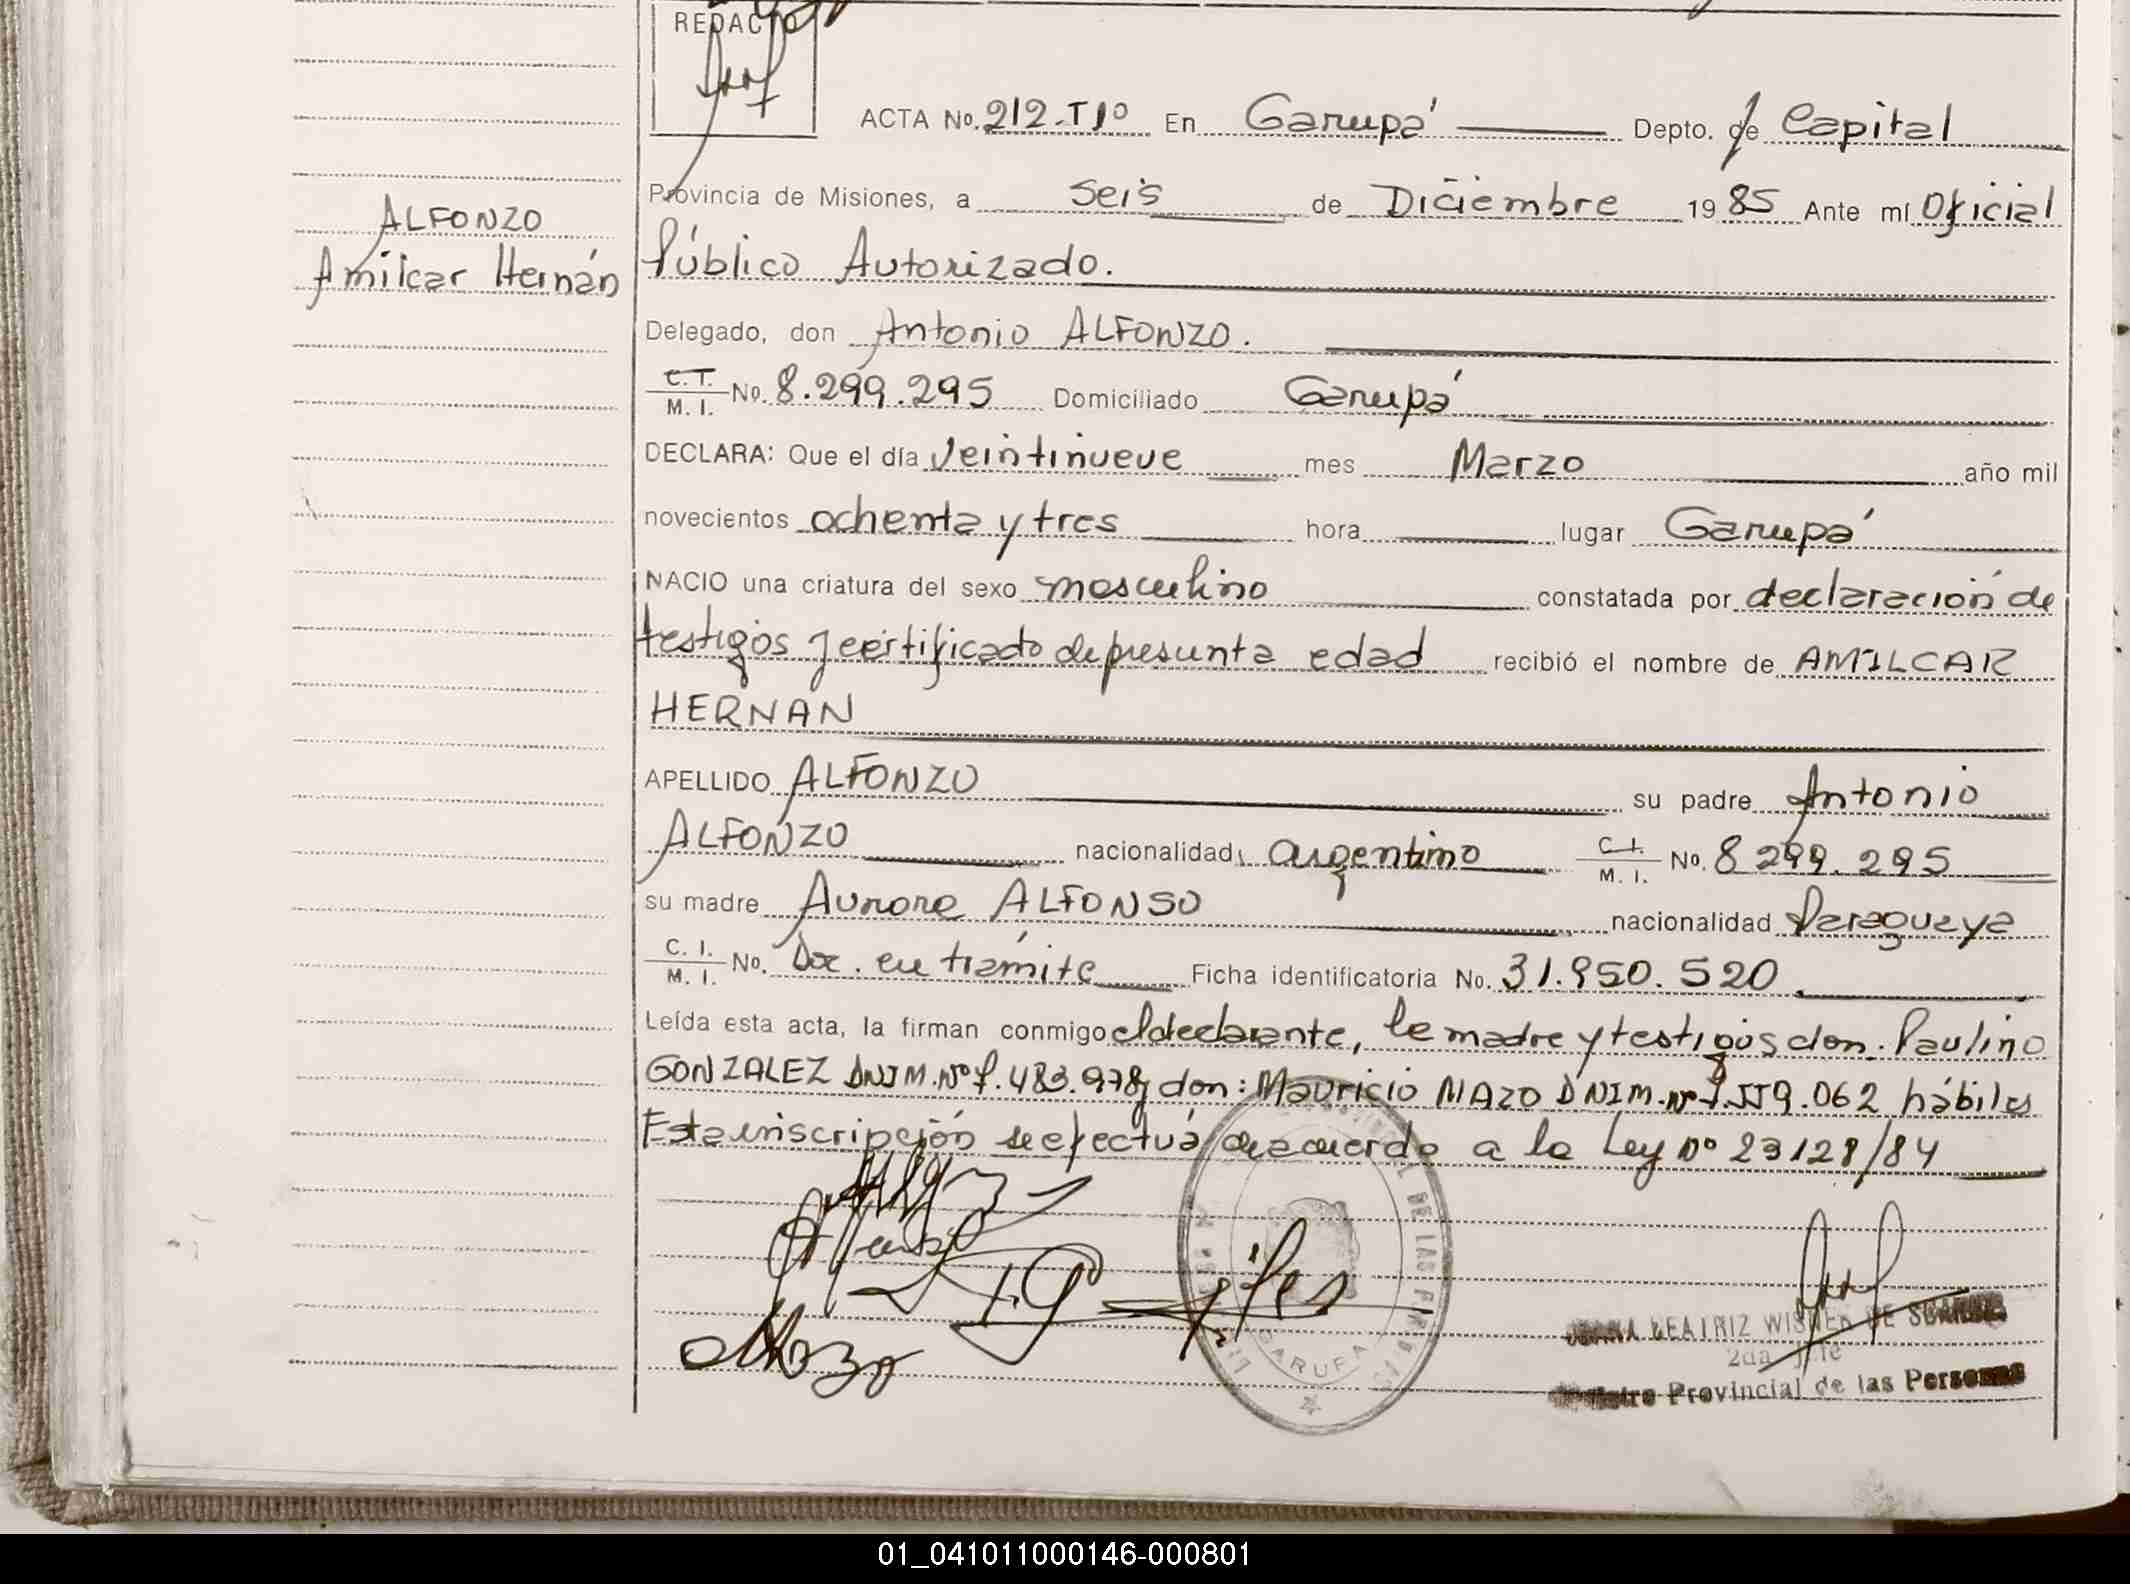 REDACTO
ACTA No. 212.T1º En Garupá Depto. de Capital
Provincia de Misiones, a seis de Diciembre 1985 Ante mí Oficial
ALFONZO
Amilcar Hernán
Público Autorizado.
Delegado, don Antonio ALFONZO.
C.I. M. I. No. 8.299.295 Domiciliado Garupá
DECLARA: Que el día veintinueve mes Marzo año mil
novecientos ochenta y tres hora lugar Garupá
NACIO una criatura del sexo masculino constatada por declaración de
testigos y certificado de presunta edad recibió el nombre de AMILCAR
HERNAN
APELLIDO ALFONZO su padre Antonio
ALFONZO nacionalidad argentino C.I. M. I. No. 8 299.295
su madre Aurora ALFONSO nacionalidad Paraguaya
C. I. M. I. No. Doc. en trámite Ficha identificatoria No. 31.950.520
Leída esta acta, la firman conmigo el declarante, la madre y testigos don. Paulino
GONZALEZ DNIM.Nº 7.483.978 y don: Mauricio MAZO DNIM.Nº 7.559.062 hábiles
Esta inscripción se efectúa de acuerdo a la Ley Nº 23128/84
DE LAS
GARUPA
BEATRIZ WISNER DE
2da. Jefe
Registro Provincial de las Personas
01_041011000146-000801